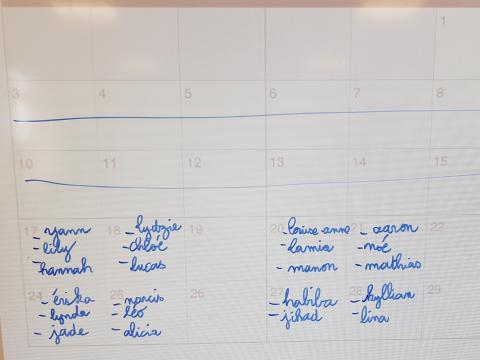 1
3 4 5 6 7 8
10 11 12 13 14 15
17 18 19 20 21 22
- yann
- lily
- hannah
- lydzie
- chloé
- lucas
- louise-anne
- lamia
- manon
- aaron
- noé
- mathias
24 25 26 27 28 29
- érika
- lynda
- jade
- narcis
- léo
- alicia
- habiba
- jihad
- kyllian
- lina